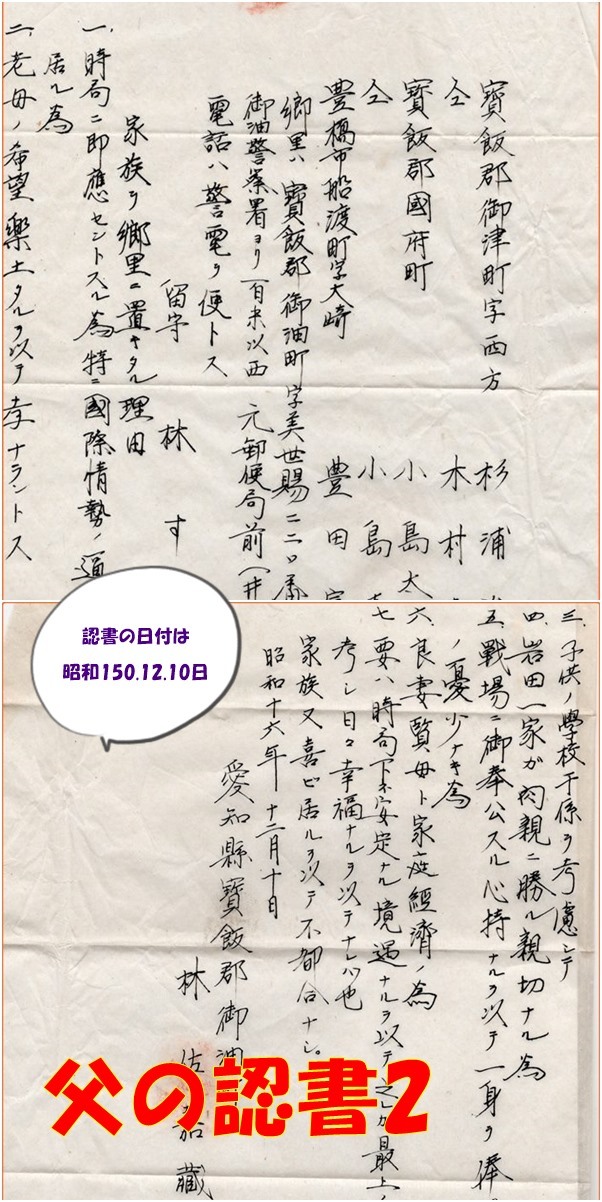 寳飯郡御津町字西方 杉浦
仝 木村
寳飯郡國府町 小島太
仝 小島
豊橋市船渡町字大崎 豊田
郷里ハ寳飯郡御油町字美世賜二二〇番
御油警察署ヨリ百米以西 元郵便局前(井
電話ハ警電ヲ便トス
留守 林 す
家族ヲ郷里ニ置キタル理由
一、時局ニ即應セントスル為特ニ國際情勢ノ逼
居ル為
二、老母ノ希望樂土タルヲ以テ孝ナラントス
認書の日付は
昭和150.12.10日
三、子供ノ學校干係ヲ考慮シテ
四、岩田一家ガ肉親ニ勝ル親切ナル為
五、戰場ニ御奉公スル心持ナルヲ以テ一身ヲ捧
ノ憂少ナキ為
六、良妻賢母ト家庭經濟ノ為
七、要ハ時局下不安定ナル境遇ナルヲ以テ之レカ最上ノ
考シ日々幸福ナルヲ以テナレハ也
家族又喜ビ居ルヲ以テ不都合ナシ。
昭和十六年十二月十日
愛知縣寳飯郡御油
林 佐嘉藏
父の認書2